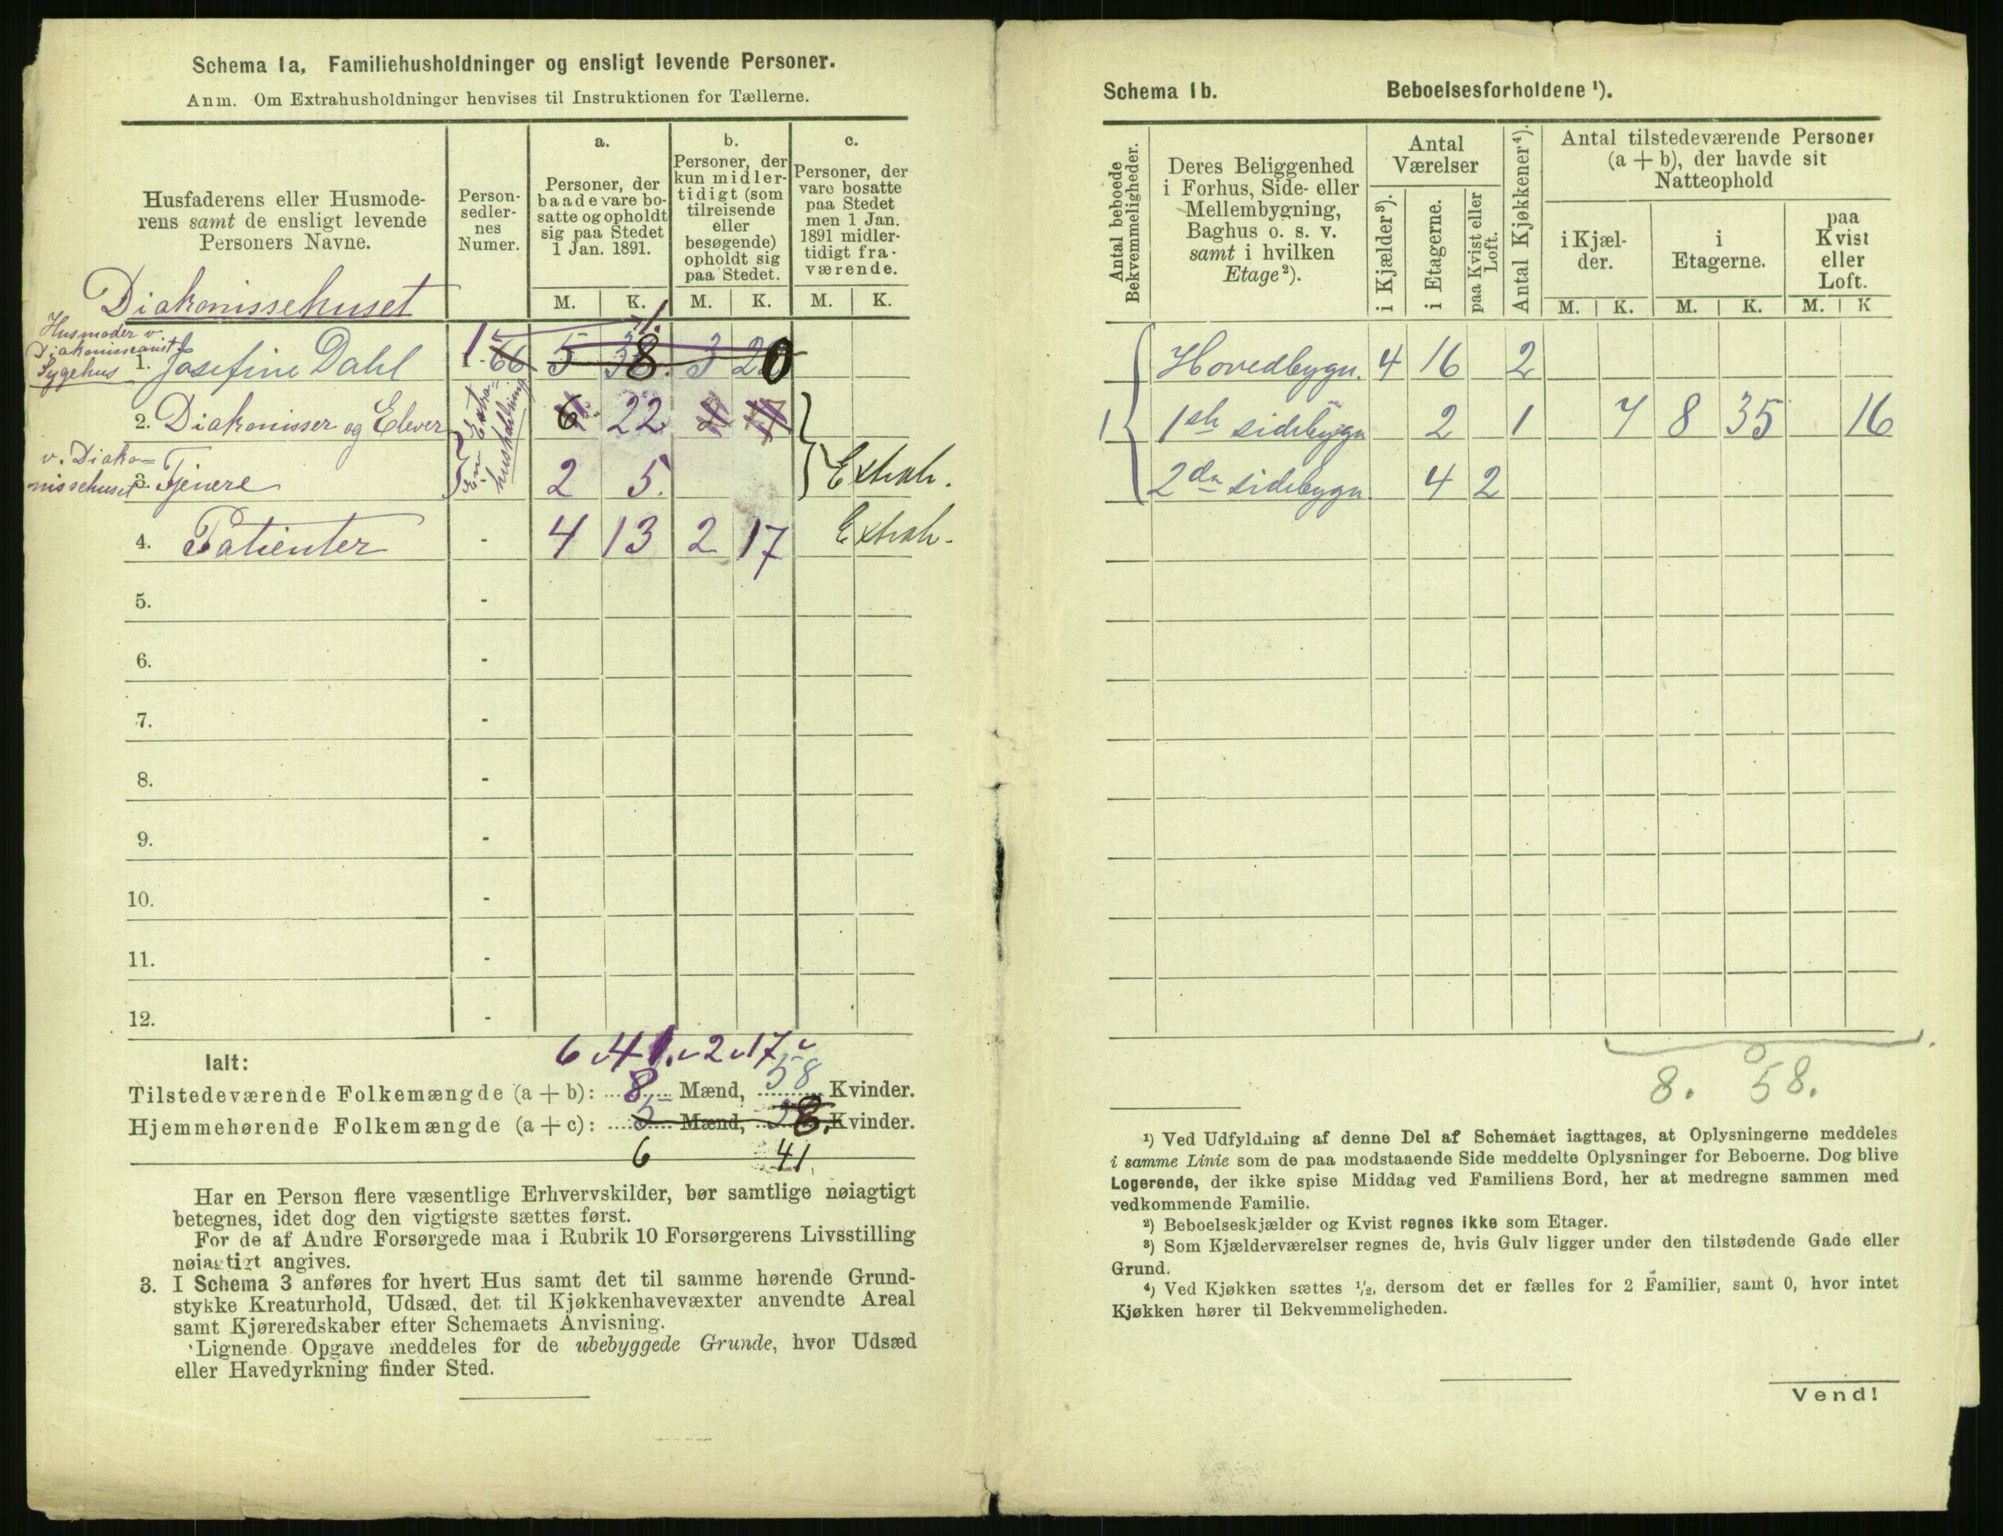 Schema 1a, Familiehusholdninger og ensligt levende Personer.
Anm. Om Extrahusholdninger henvises til Instruktionen for Tællerne.
Husfaderens eller Husmode-
rens samt de ensligt levende
Personers Navne.
Person-
sedler-
nes
Numer.
a.
Personer, der
baade vare bo-
satte og opholdt
sig paa Stedet
1 Jan. 1891.
b.
Personer, der
kun midler-
tidigt (som
tilreisende
eller
besøgende)
opholdt sig
paa Stedet.
c.
Personer, der
vare bosatte
paa Stedet
men 1 Jan.
1891 midler-
tidigt fra-
værende.
M. K. M. K. M. K.
Diakonissehuset
Husmoder v.
Diakonisseanst.
Sygehus
1. Josefine Dahl 1-66 5 38. 3 20
1 1.
2. Diakonisser og Elever 6 22
En Extra-
husholdning
v. Diako-
nissehuset
3. Tjenere 2 5. Extrah.
4. Patienter - 4 13 2 17 Extrah.
5. -
6. -
7. -
8. -
9. -
10. -
11. -
12. -
6 41. 2 17
Ialt:
Tilstedeværende Folkemængde (a + b): 8 Mænd, 58 Kvinder.
Hjemmehørende Folkemængde (a + c): 5 Mænd, 38. Kvinder.
6 41.
Har en Person flere væsentlige Erhvervskilder, bør samtlige nøiagtigt
betegnes, idet dog den vigtigste sættes først.
For de af Andre Forsørgede maa i Rubrik 10 Forsørgerens Livsstilling
nøiagtigt angives.
3. I Schema 3 anføres for hvert Hus samt det til samme hørende Grund-
stykke Kreaturhold, Udsæd, det til Kjøkkenhavevæxter anvendte Areal
samt Kjøreredskaber efter Schemaets Anvisning.
Lignende Opgave meddeles for de ubebyggede Grunde, hvor Udsæd
eller Havedyrkning finder Sted.
Schema 1b. Beboelsesforholdene ¹).
Antal beboede
Bekvemmeligheder.
Deres Beliggenhed
i Forhus, Side- eller
Mellembygning,
Baghus o. s. v.
samt i hvilken
Etage ²).
Antal
Værelser
i Kjælder ³).
i Etagerne.
paa Kvist eller
Loft.
Antal Kjøkkener ⁴).
Antal tilstedeværende Personer
(a + b), der havde sit
Natteophold
i Kjæl-
der.
i
Etagerne.
paa
Kvist
eller
Loft.
M. K. M. K. M. K
Hovedbygn. 4 16 2
1 1ste sidebygn 2 1 7 8 35 16
2den sidebygn. 4 2
8. 58.
¹) Ved Udfyldning af denne Del af Schemaet iagttages, at Oplysningerne meddeles
i samme Linie som de paa modstaaende Side meddelte Oplysninger for Beboerne. Dog blive
Logerende, der ikke spise Middag ved Familiens Bord, her at medregne sammen med
vedkommende Familie.
²) Beboelseskjælder og Kvist regnes ikke som Etager.
³) Som Kjælderværelser regnes de, hvis Gulv ligger under den tilstødende Gade eller
Grund.
⁴) Ved Kjøkken sættes ¹/₂, dersom det er fælles for 2 Familier, samt 0, hvor intet
Kjøkken hører til Bekvemmeligheden.
Vend!